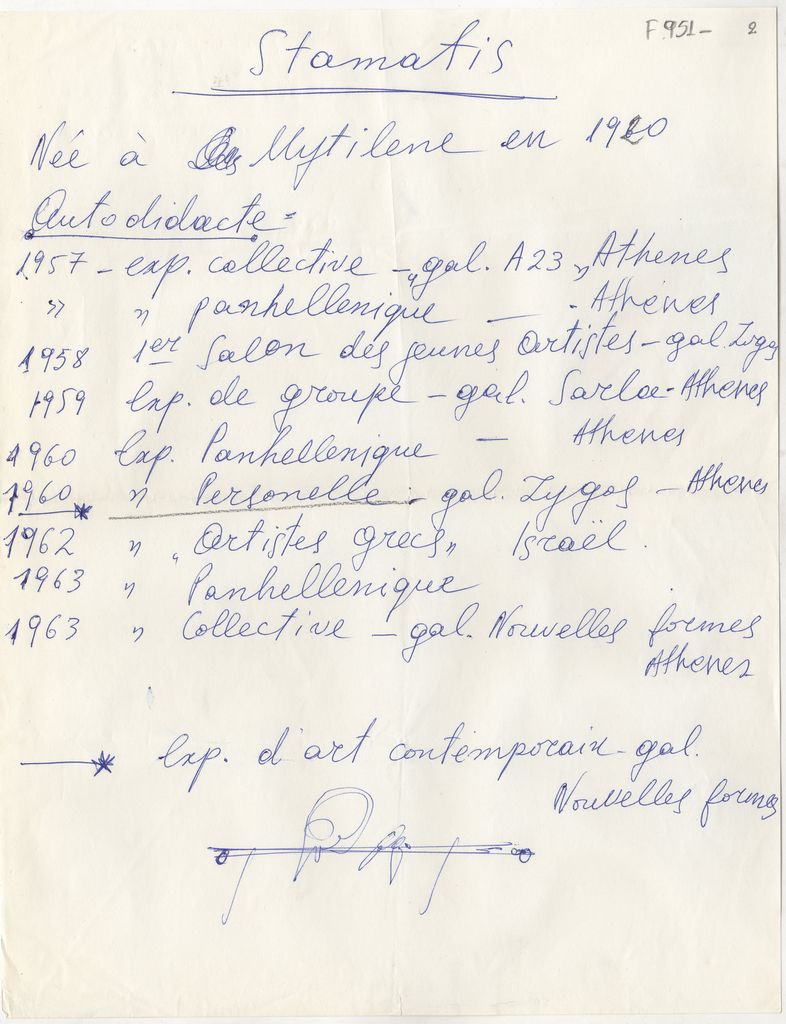 F.951- 2
Stamatis
Née à Mytilene en 1920
Autodidacte =
1957 - exp. collective - "gal. A23" Athenes
" " panhellenique — - Athènes
1958 1er Salon des jeunes Artistes - gal. Zygos
1959 Exp. de groupe - gal. Sarla - Athenes
1960 Exp. Panhellenique — Athenes
1960 " Personelle - gal. Zygos - Athenes
1962 " "Artistes grecs" Israël.
1963 " Panhellenique
1963 " Collective - gal. Nouvelles formes
Athenes
* Exp. d'art contemporain - gal.
Nouvelles formes